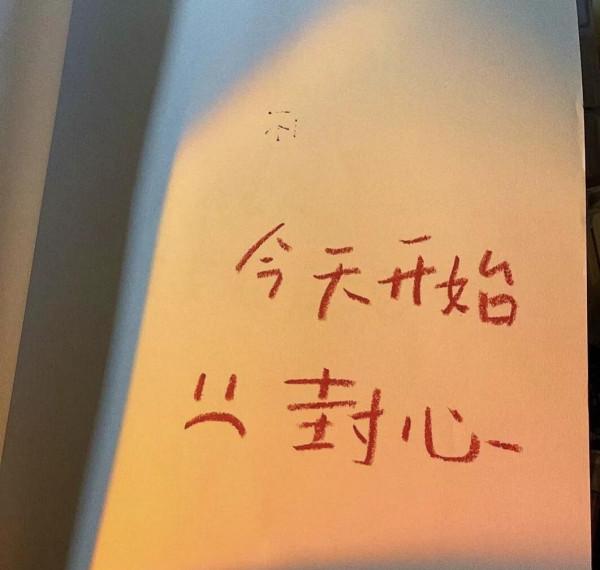 今天开始
:( 封心